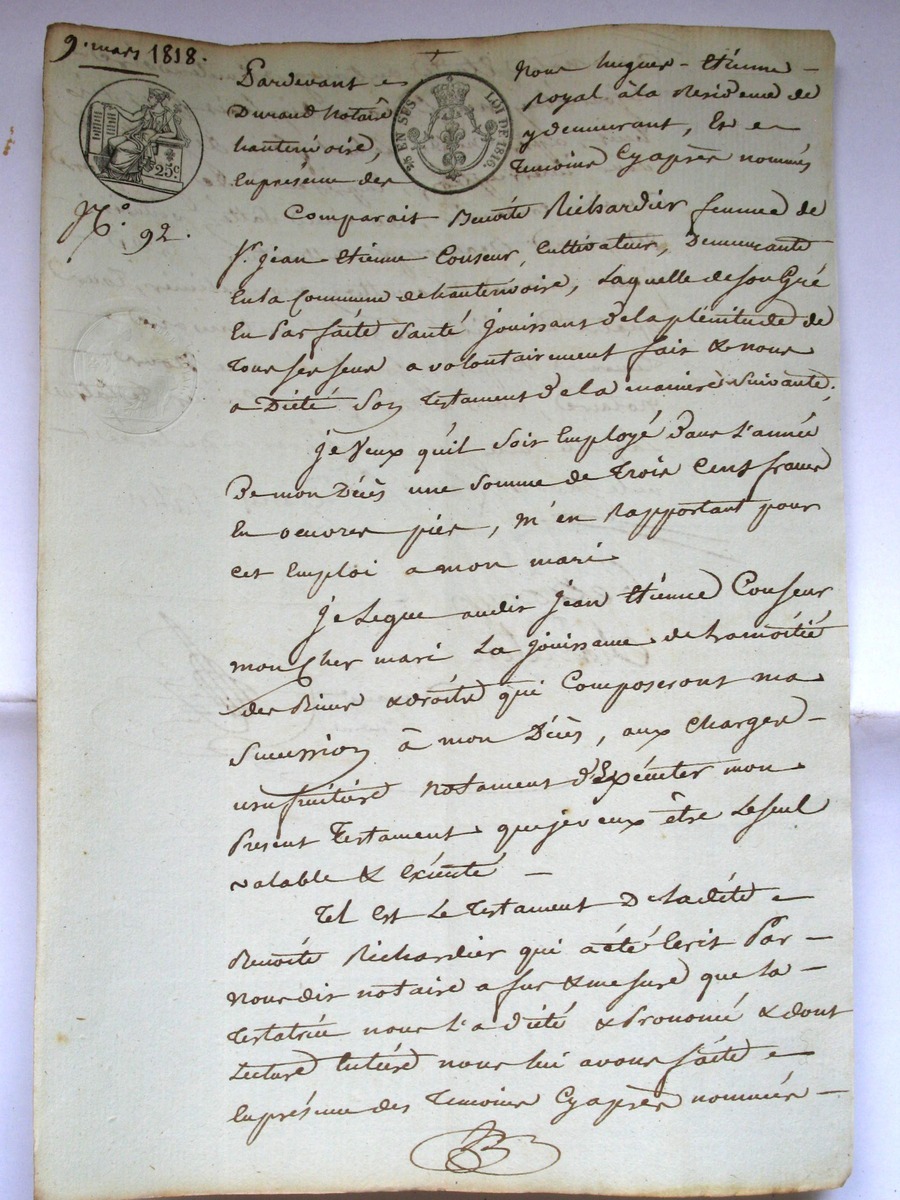 9. mars 1818.
Pardevant Nous hugues - Etiénne -
Durand Notaire royal à la Residence de
hauterivoire, y demeurant, Et
En présence des Temoins Cyaprès nommés
25c.
EN SUS LOI DE 1816.
N.° 92.
Comparait Benoite Richardier femme de
Sr. jean Etienne Couseur, Cultivateur, Demeurante
En la Commune de hauterivoire, Laquelle de son Gré
En Parfaite Santé jouissant de la plénitude de
Tous ses sens a volontairement fait & nous
a Dicté Son Testament de la maniere Suivante,
je Veux qu'il soit Employé Dans L'année
De mon Décès une Somme de Trois Cent francs
En oeuvres pies, m'en rapportant pour
cet Emploi a mon mari
je Legue audit jean Etienne Couseur
mon Cher mari La jouissance de la moitié
des Biens & droits qui Composeront ma
Succession à mon Décès, aux charges -
usufruitiere Notament d'Exécuter mon
Present Testament que je veux être Le seul
valable & Exécuté -
Tel Est Le Testament De ladite
Benoite Richardier qui a été Ecrit Par -
Nous dit notaire a fur & mesure que la -
Testatrice nous L'a dicté & Prononcé & dont
Lecture Entiere nous lui avons faite
En présence des Temoins Cyaprès nommés -